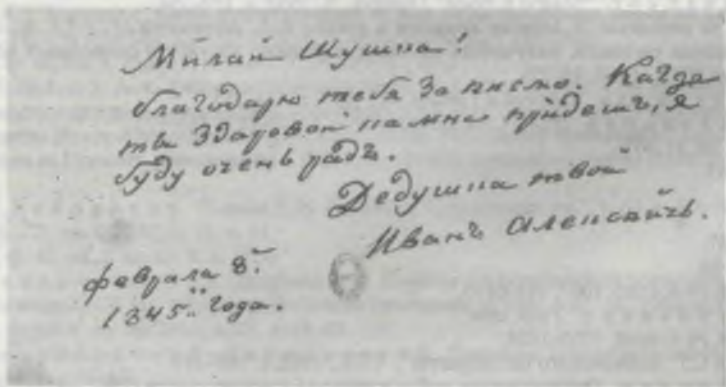 Милай Шушка!
благодарю тебя за писмо. Кагда
ты здаровой ка мне прйдешъ, я
буду очень радъ.
Дедушка твой
Иванъ Алексейчъ.
февраля 8.
1845.. года.